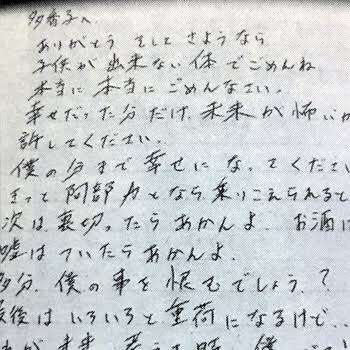 多香子へ
ありがとう そして さようなら
子供が出来ない体でごめんね
本当に本当にごめんなさい。
幸せだった分だけ、未来が怖いか
許してください。
僕の分まで幸せになってくださ
きっと阿部力となら乗りこえられると
次は裏切ったらあかんよ。お酒に
嘘はついたらあかんよ。
多分、僕の事を恨むでしょう?
最後はいろいろと重荷になるけど…